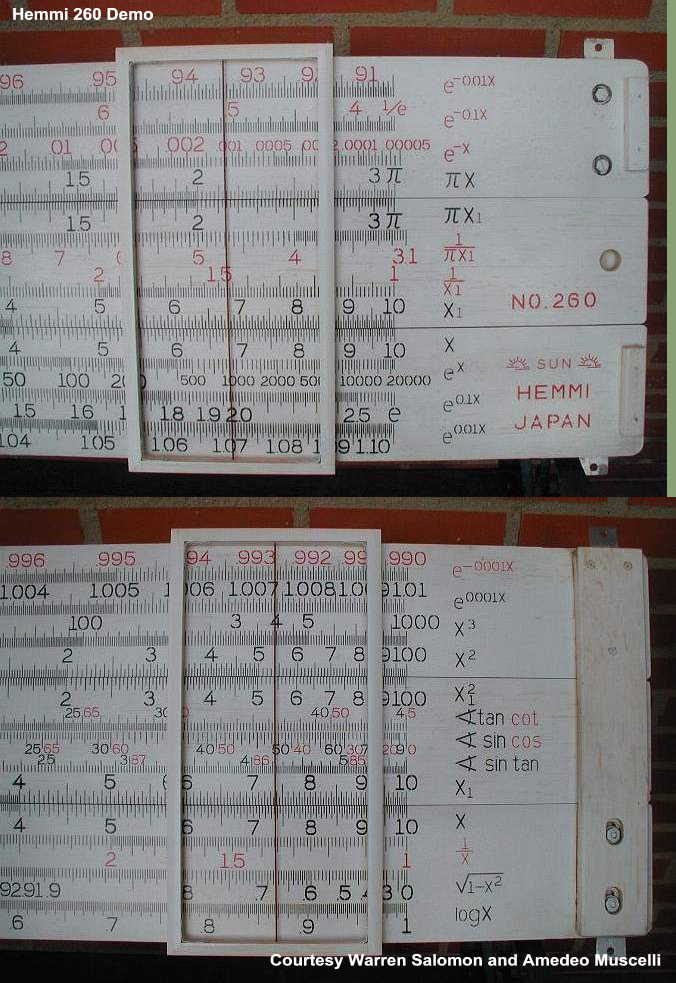 Hemmi 260 Demo
96 95 94 93 91 e^-0.01X
6 5 4 1/e e^-0.1X
01 002 001 0005 0001 00005 e^-X
1.5 2 3 π πX
1.5 2 3 π πX1
8 7 5 4 3.1 1/πX1
2 1.5 1 1/X1
4 5 6 7 8 9 10 X1
NO.260
4 5 6 7 8 9 10 X
50 100 500 1000 2000 10000 20000 e^X
SUN
15 16 18 19 20 2.5 e e^0.1X
HEMMI
104 105 1.06 1.07 1.08 1.10 e^0.01X
JAPAN
.996 .995 .993 .992 .990 e^-0.001X
1.004 1.005 1.007 1.008 1.01 e^0.001X
100 3 4 5 1000 X³
2 3 4 5 6 7 8 9 100 X²
2 3 4 5 6 7 8 9 100 X1²
25 65 40 50 4.5 ∢tan cot
25 65 30 60 40 50 50 40 ∢ sin cos
2.5 3 87 4 86 ∢ sin tan
4 5 6 7 8 9 10 X1
4 5 6 7 8 9 10 X
2 1.5 1 1/X
.92 .91 .9 .8 .7 .6 .5 0 √1-X²
.6 .7 .8 .9 1 logX
Courtesy Warren Salomon and Amedeo Muscelli